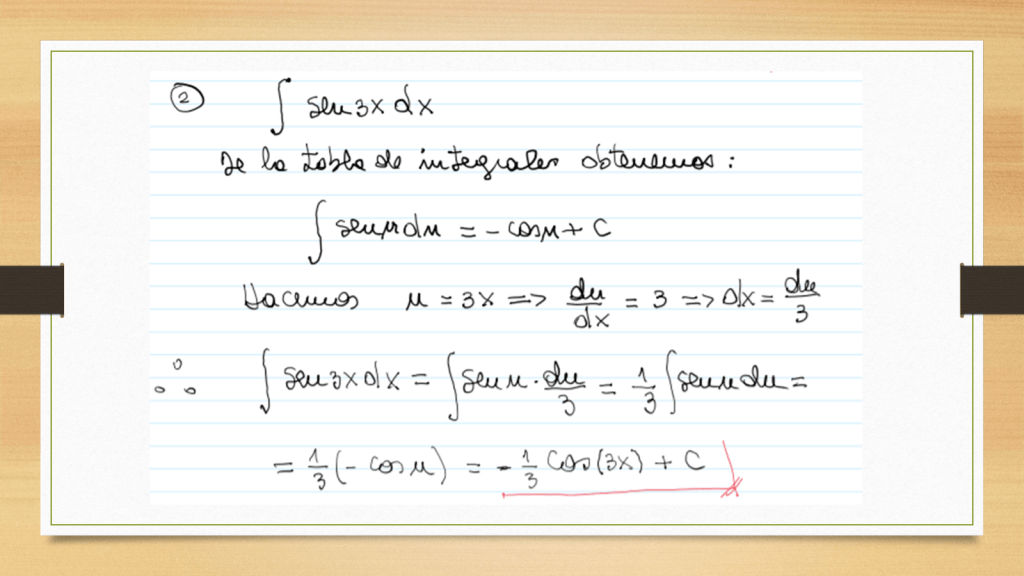 2 ∫ sen 3x dx
De la tabla de integrales obtenemos:
∫ sen u du = - cos u + C
Hacemos u = 3x => du/dx = 3 => dx = du/3
∴ ∫ sen 3x dx = ∫ sen u · du/3 = 1/3 ∫ sen u du =
= 1/3 (- cos u) = - 1/3 Cos (3x) + C